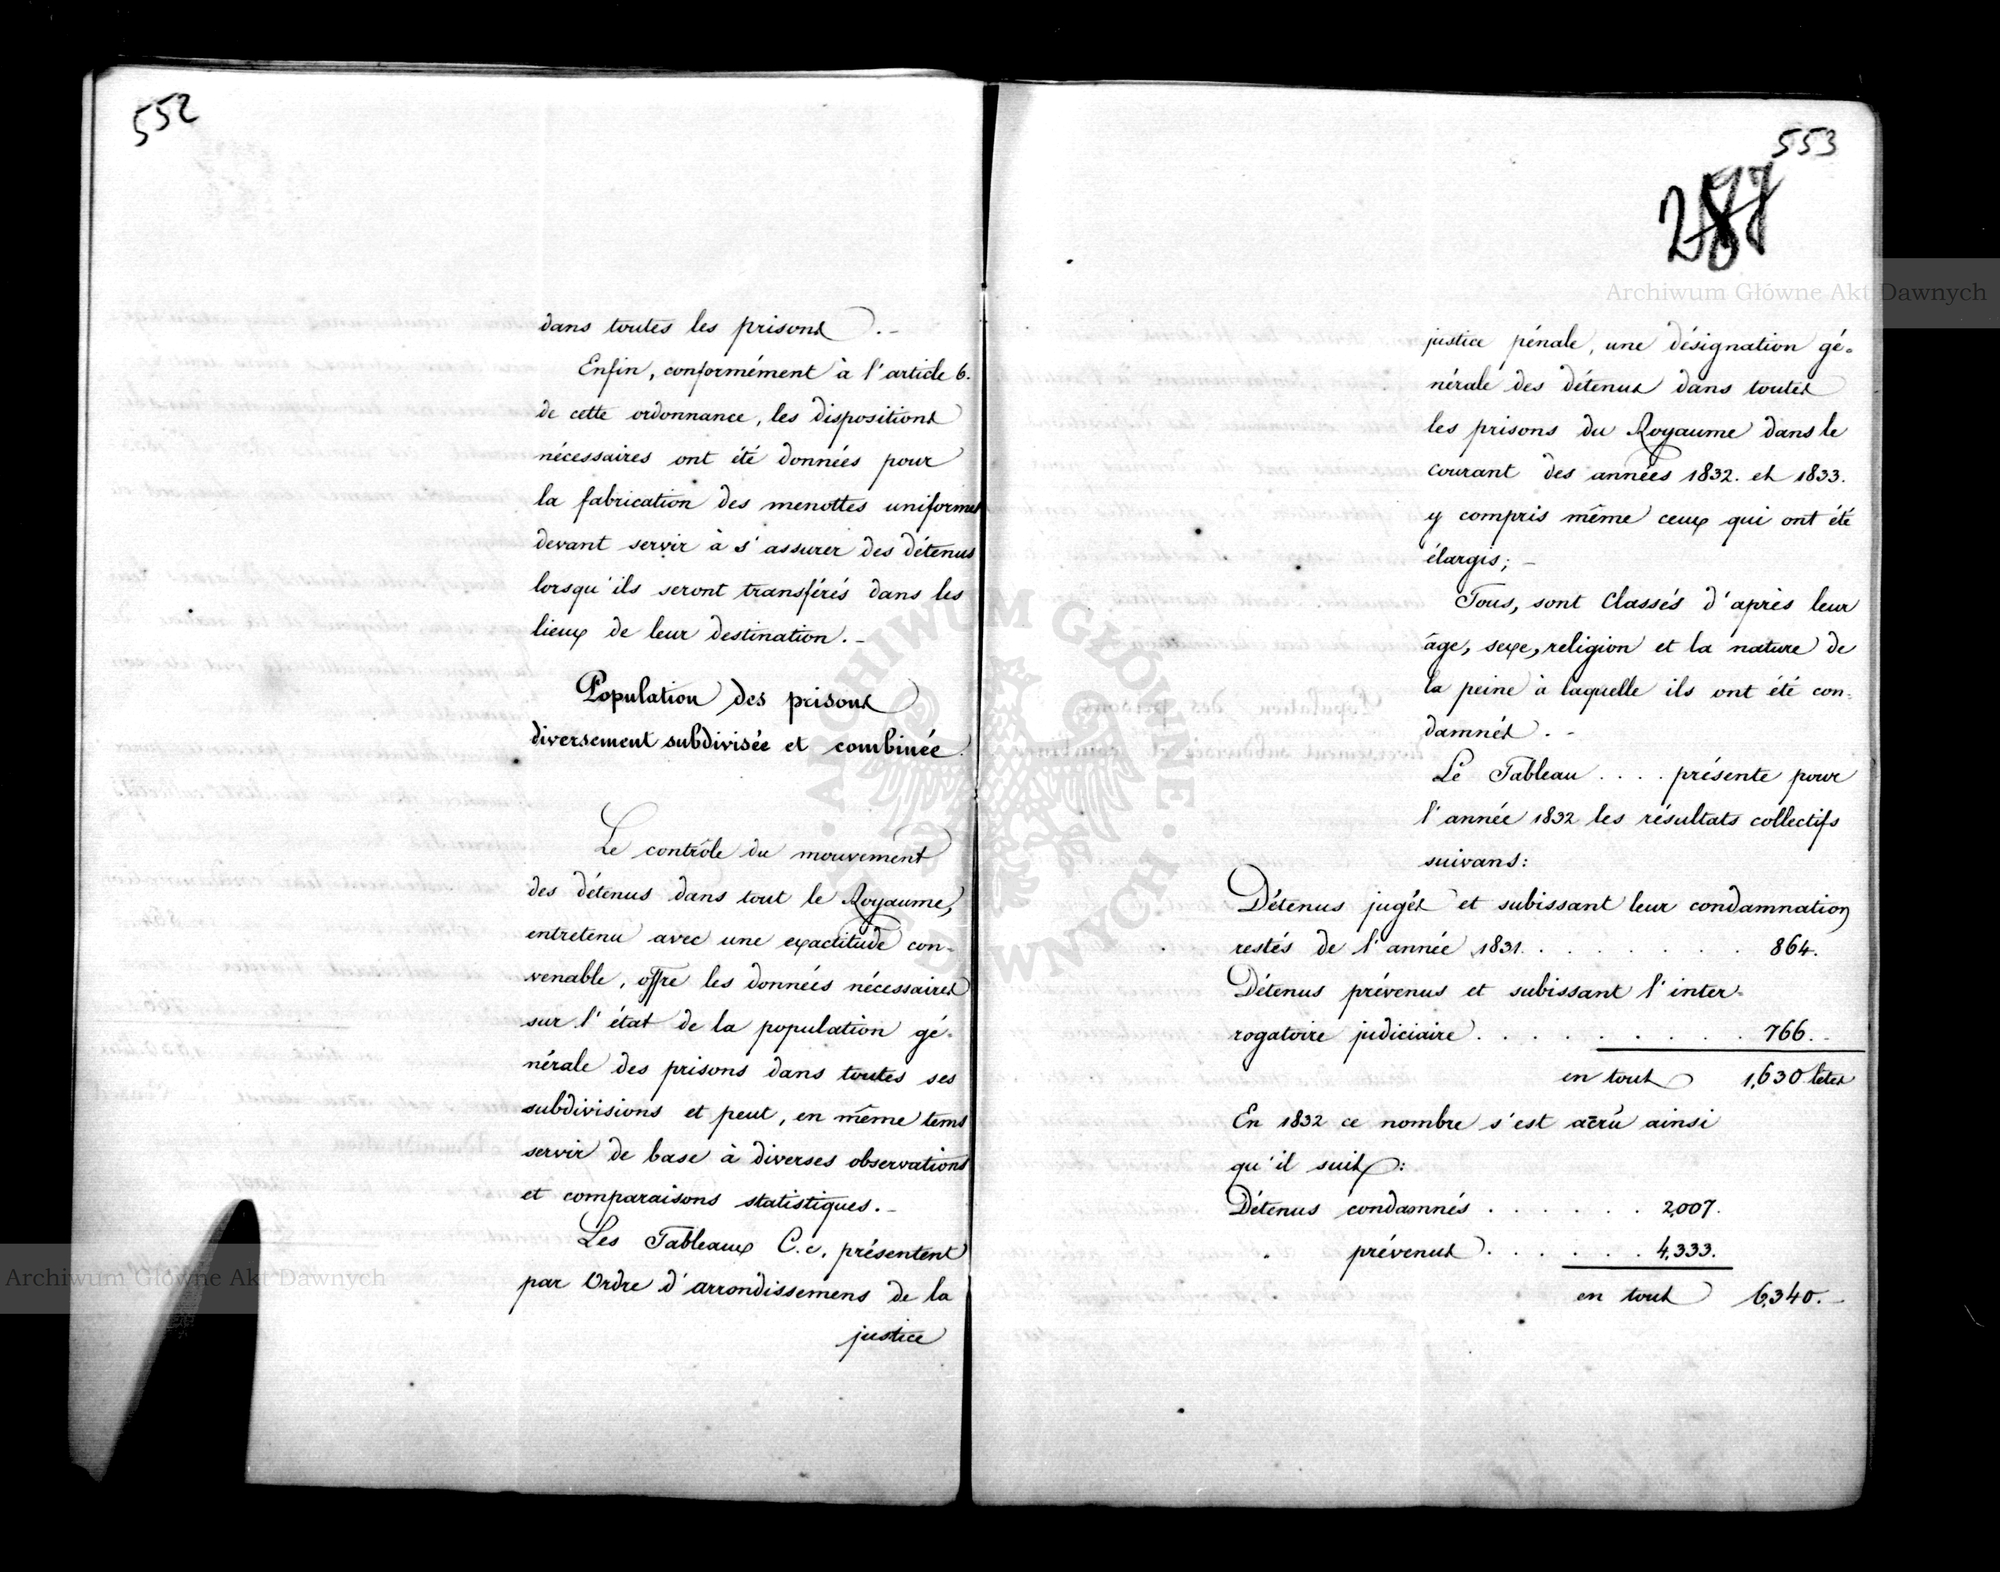 552
dans toutes les prisons.-
Enfin, conformément à l'article 6.
de cette ordonnance, les dispositions
nécessaires ont été données pour
la fabrication des menottes uniformes
devant servir à s'assurer des détenus
lorsqu'ils seront transférés dans les
lieux de leur destination.-
Population des prisons
diversement subdivisée et combinée.
Le contrôle du mouvement
des détenus dans tout le Royaume,
entretenu avec une exactitude con-
venable, offre les données nécessaires
sur l'état de la population gé-
nérale des prisons dans toutes ses
subdivisions et peut, en même tems
servir de base à diverses observations
et comparaisons statistiques.-
Les Tableaux C.c, présentent
par Ordre d'arrondissemens de la
justice
553
justice pénale, une désignation gé-
nérale des détenus dans toutes
les prisons du Royaume dans le
courant des années 1832. et 1833.
y compris même ceux qui ont été
élargis; -
Tous, sont classés d'après leur
âge, sexe, religion et la nature de
la peine à laquelle ils ont été con-
damnés. -
Le Tableau .... présente pour
l'année 1832 les résultats collectifs
suivans:
Détenus jugés et subissant leur condamnation
restés de l'année 1831. . . . . . . 864.
Détenus prévenus et subissant l'inter-
rogatoire judiciaire . . . . . . . 766.-
en tout 1,630 têtes
En 1832 ce nombre s'est acrû ainsi
qu'il suit:
Détenus condamnés . . . . . . 2,007.
" prévenus . . . . . . 4,333.
en tout 6,340.-
Archiwum Główne Akt Dawnych
Archiwum Główne Akt Dawnych
ARCHIWUM GŁÓWNE AKT DAWNYCH